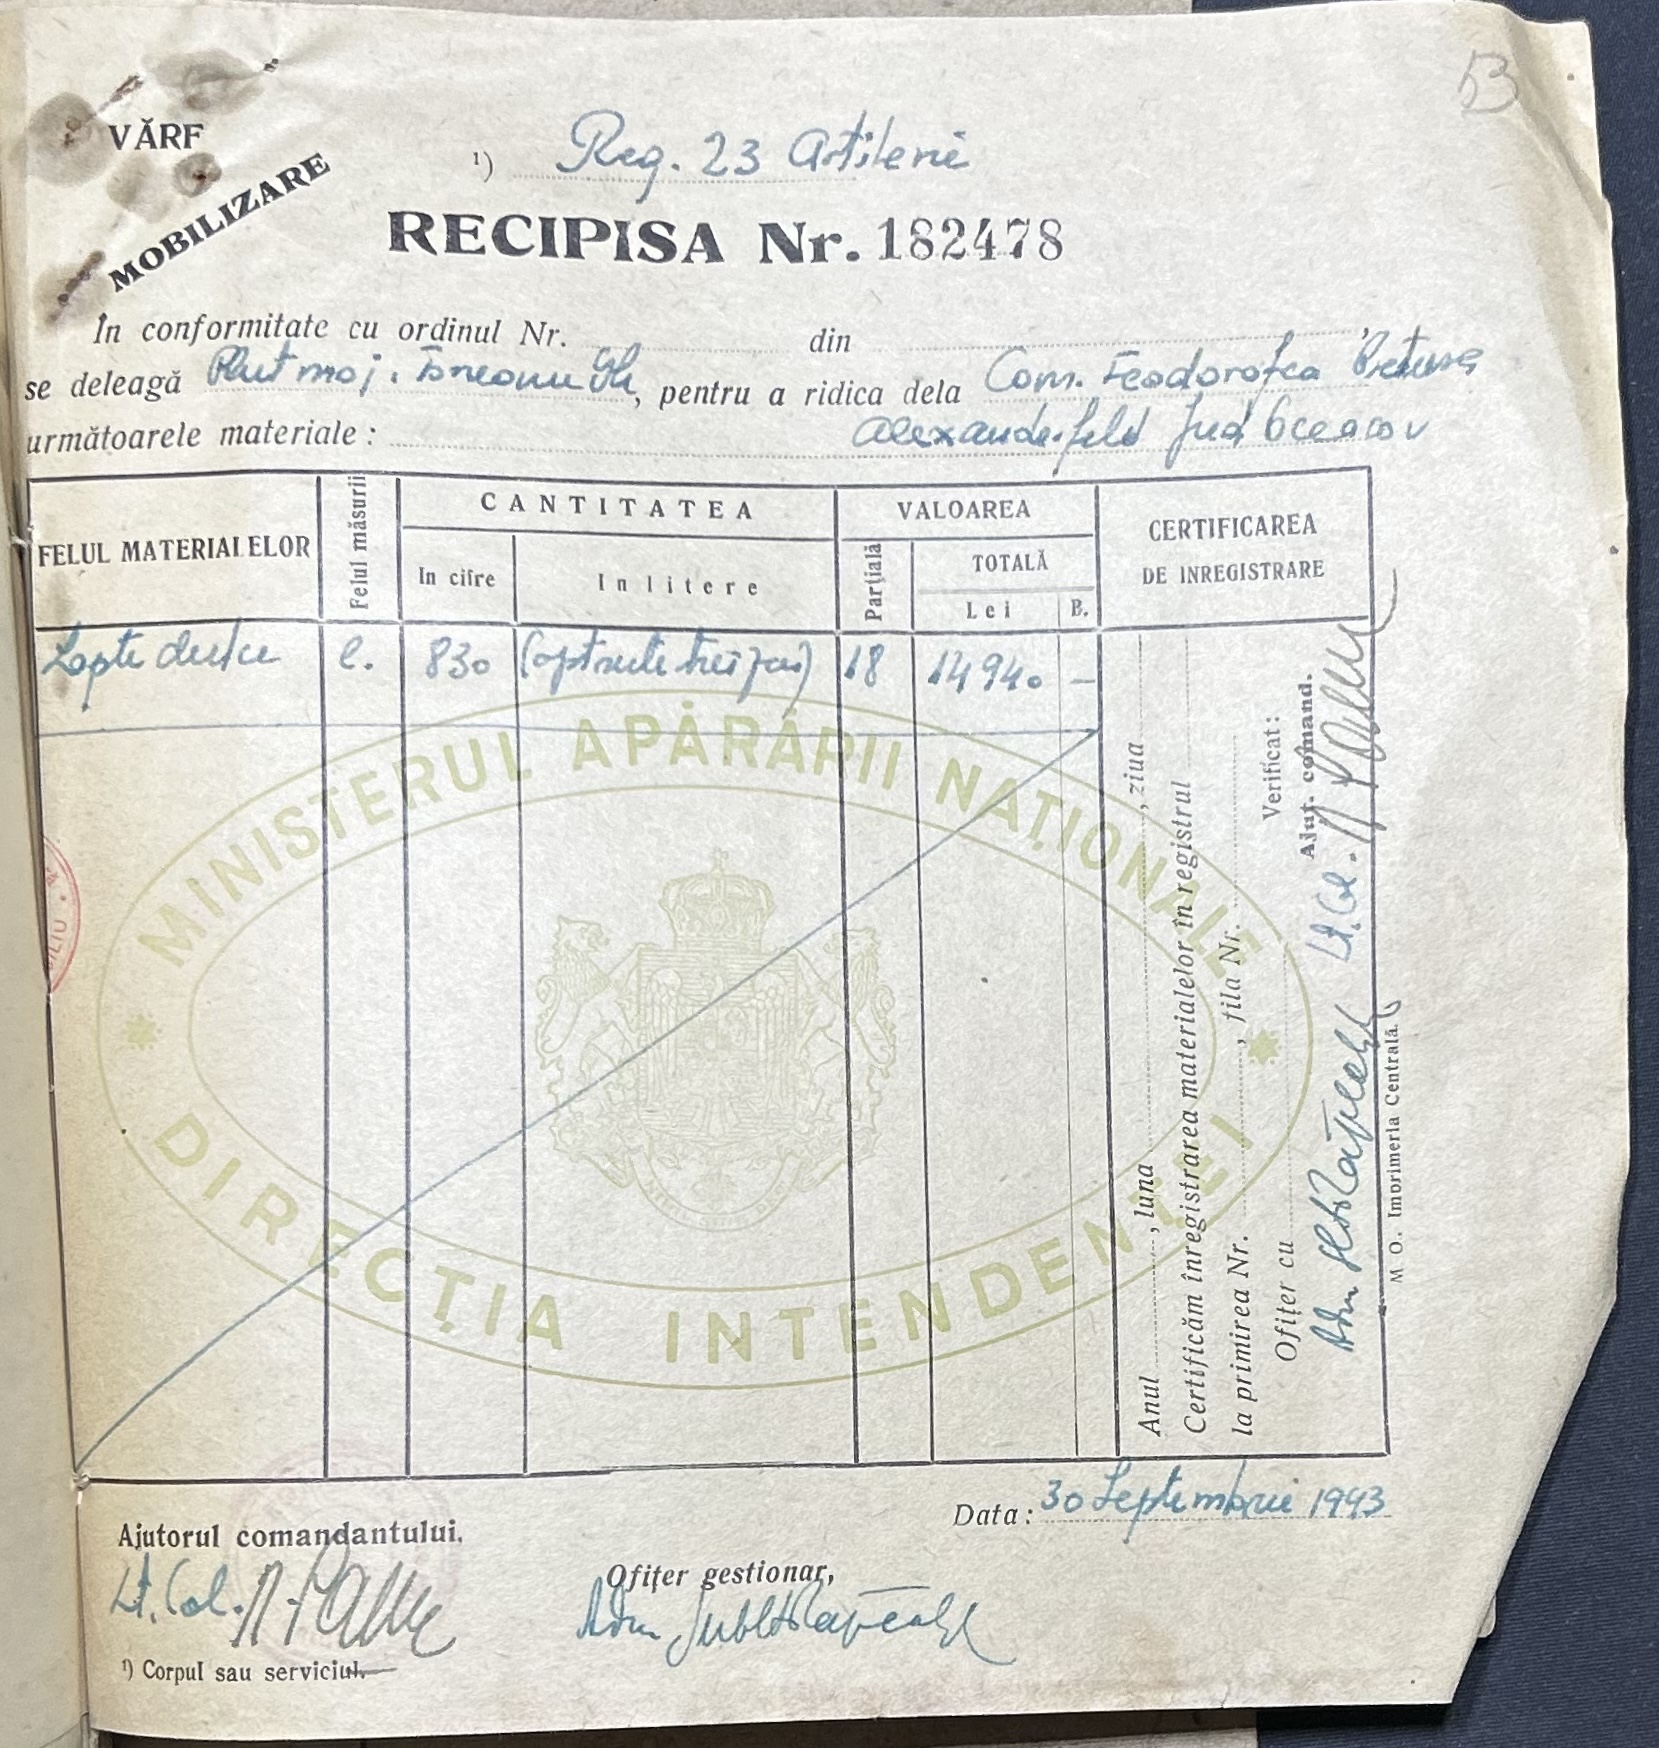 53
VĂRF
MOBILIZARE
¹) Reg. 23 Artilerie
RECIPISA Nr. 182478
În conformitate cu ordinul Nr. din ,
se deleagă Plut maj. , pentru a ridica dela Com. Feodorofca
următoarele materiale : Alexanderfeld Jud Oceacov
FELUL MATERIALELOR
Felul măsurii
CANTITATEA
In cifre
In litere
VALOAREA
Parțială
TOTALĂ
Lei
B.
CERTIFICAREA
DE INREGISTRARE
Lapte dulce l. 830 (optsute treizeci) 18 14940 —
Anul , luna , ziua
Certificăm înregistrarea materialelor în registrul
la primirea Nr. , fila Nr.
Verificat:
Ofițer cu Ajut. comand.
Adm Lt. Col.
M. O. Imprimeria Centrală.
MINISTERUL APĂRĂRII NAȚIONALE
DIRECȚIA INTENDENȚEI
Data: 30 Septembrie 1943
Ajutorul comandantului,
Lt. Col.
Ofițer gestionar,
Adm Sublt
¹) Corpul sau serviciul.